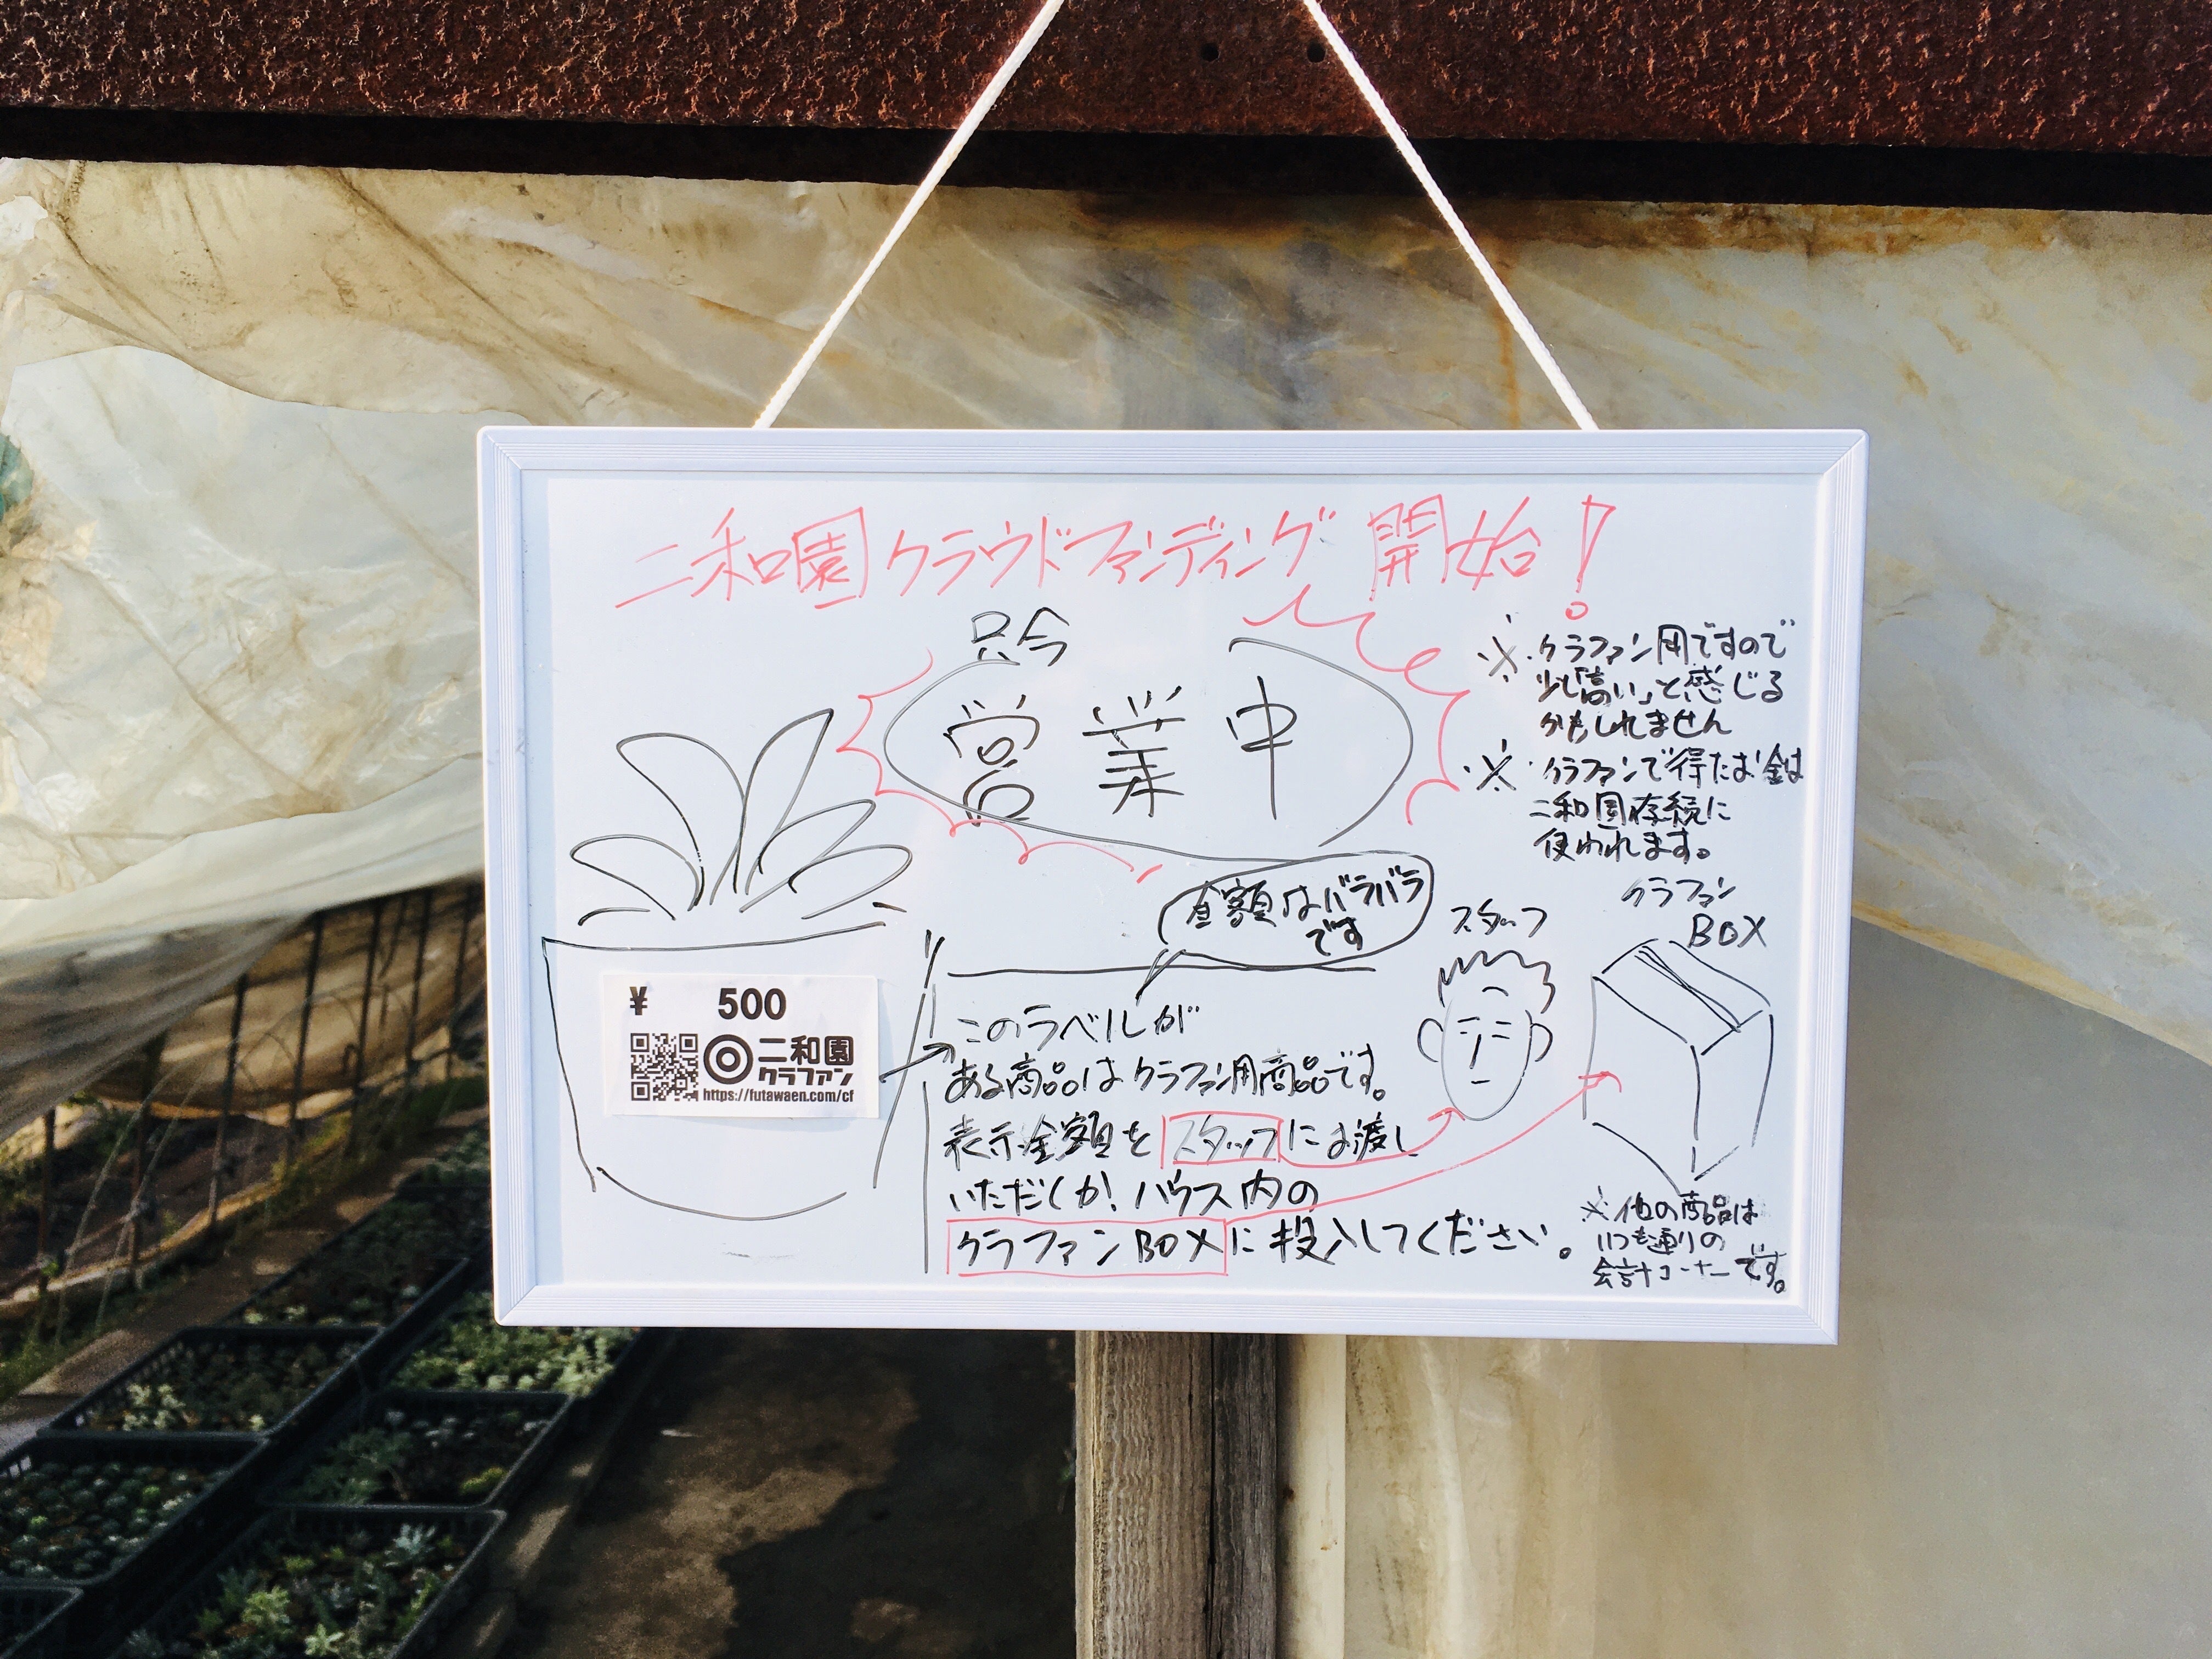 二和園クラウドファンディング 開始！
只今
営業中
※クラファン用ですので
少し「高い」と感じる
かもしれません
※クラファンで得たお金は
二和園存続に
使われます。
金額はバラバラ
です
スタッフ
クラファン
BOX
¥ 500
二和園
クラファン
https://futawaen.com/cf
このラベルが
ある商品はクラファン用商品です。
表示金額をスタッフにお渡し
いただくか！ハウス内の
クラファンBOXに投入してください。
※他の商品は
いつも通りの
会計コーナーです。